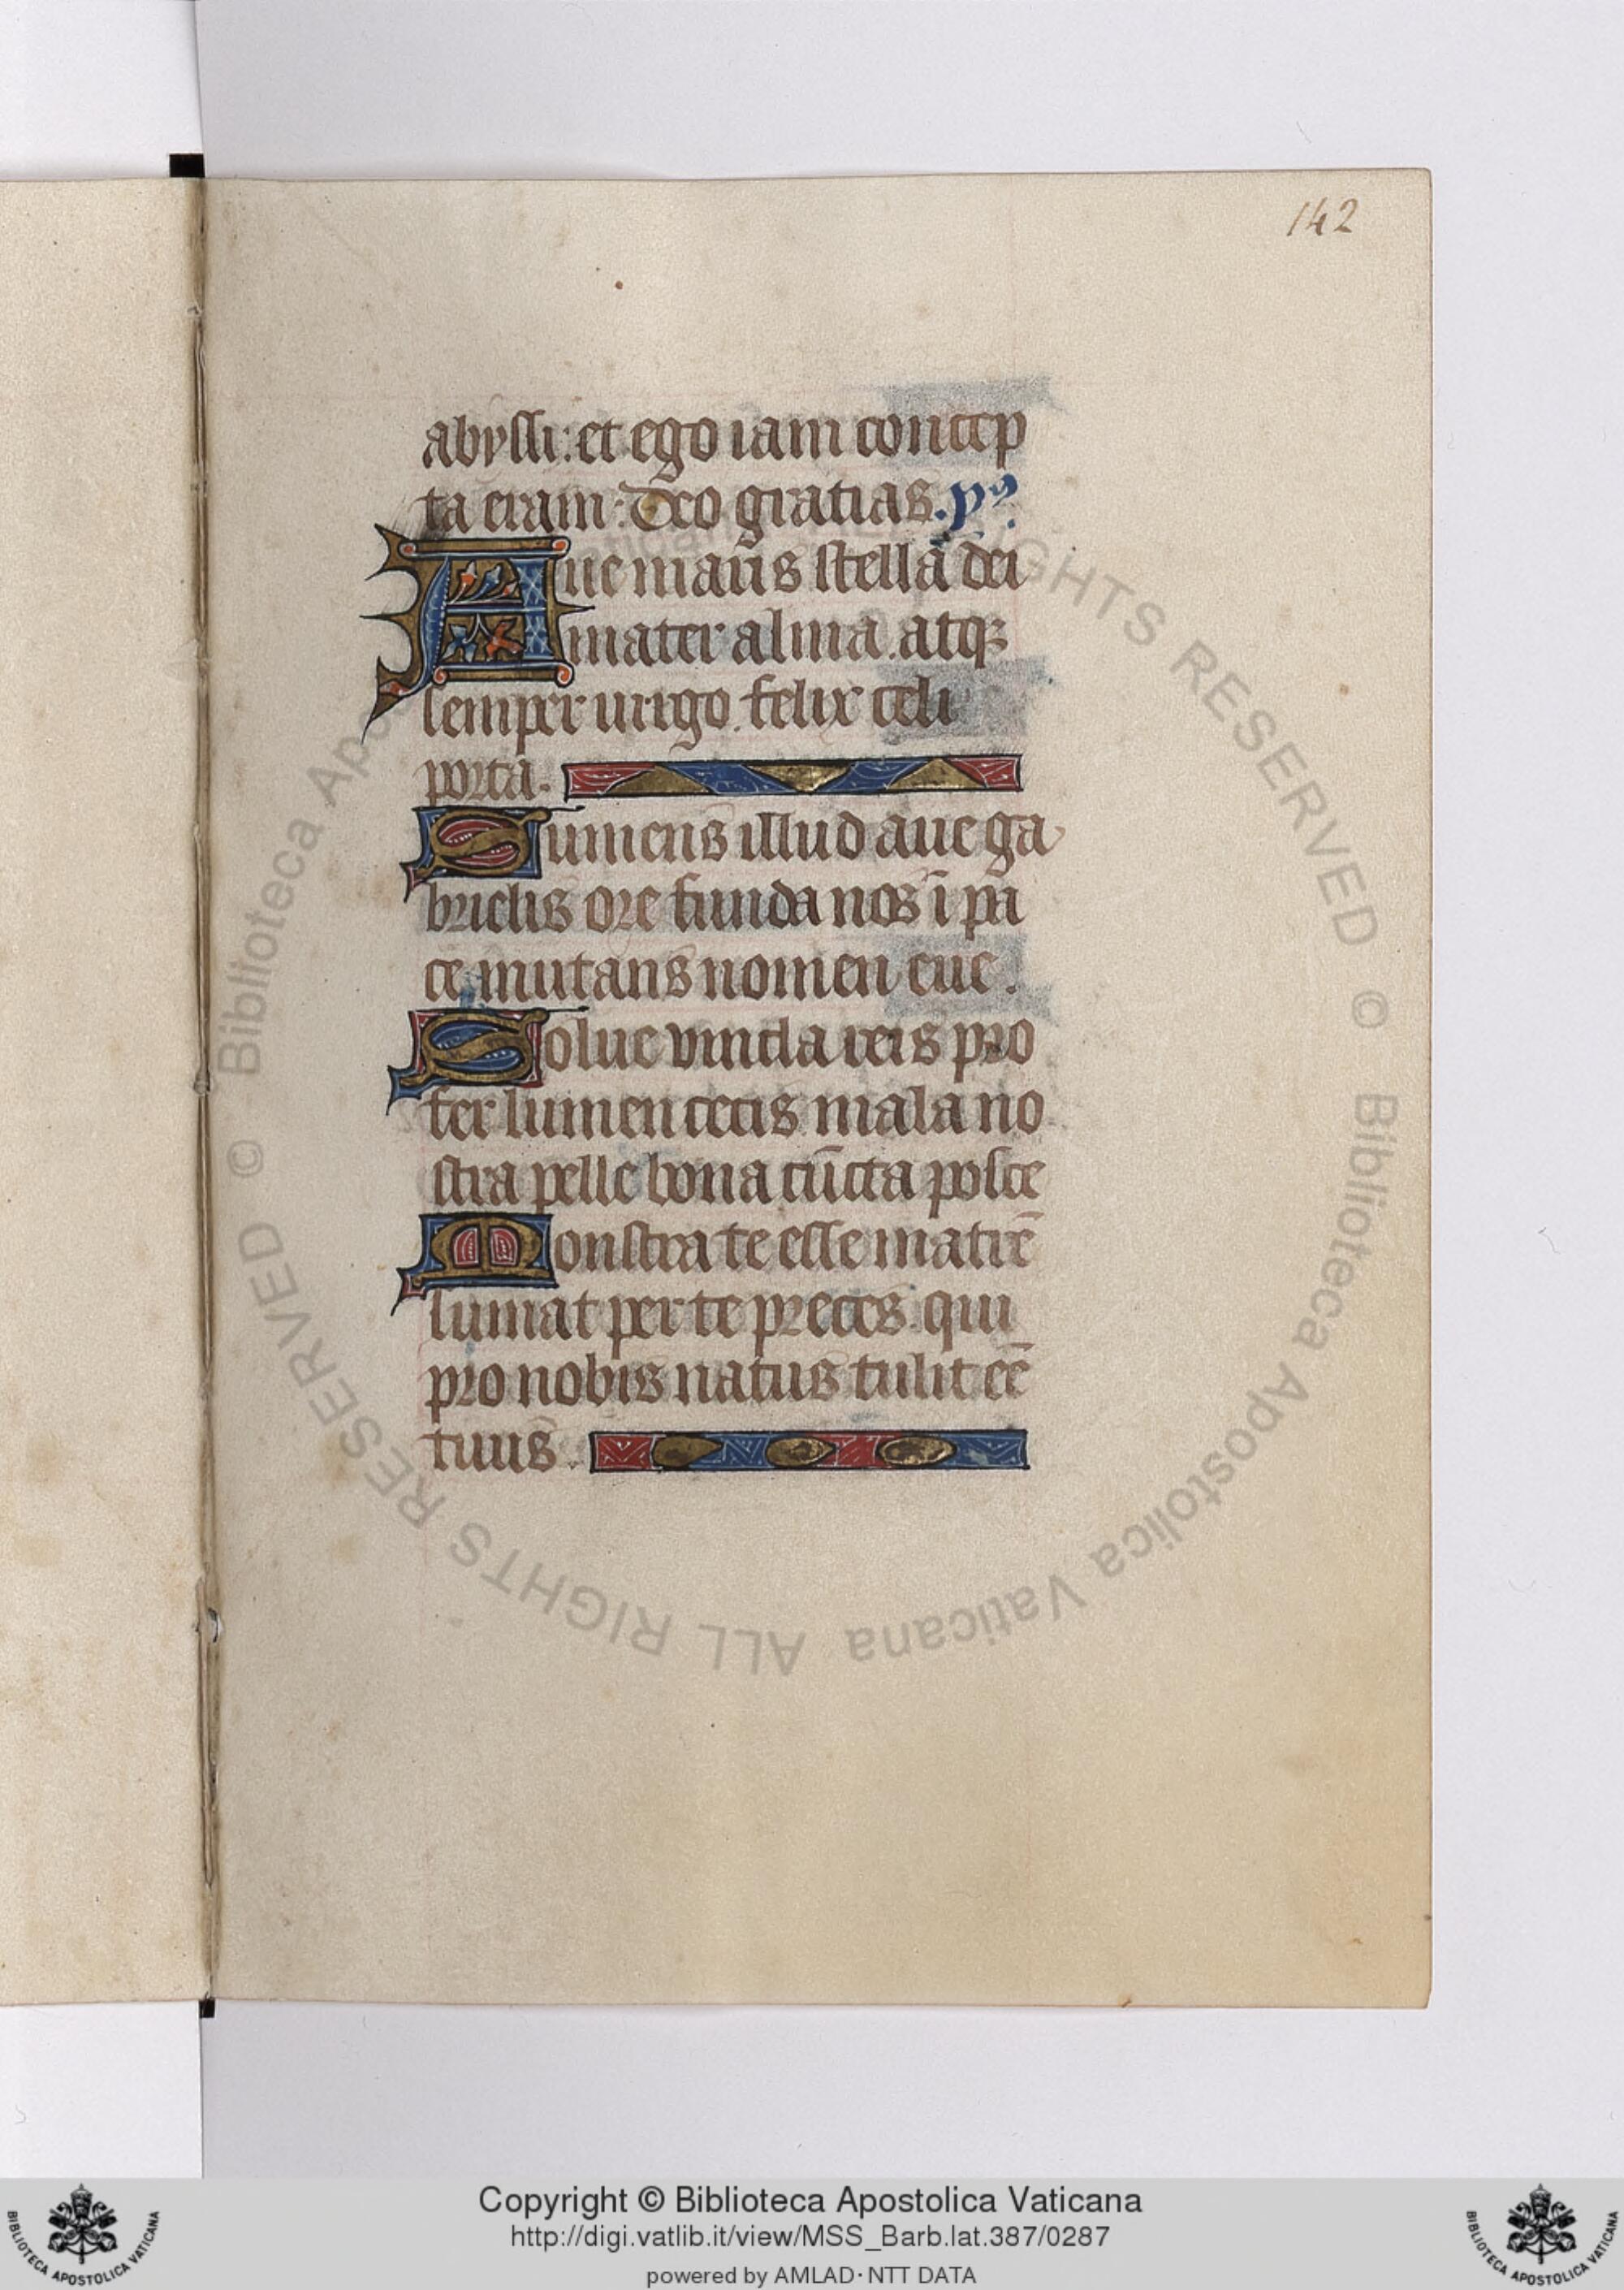 142
abyssi: et ego iam concep
ta eram: Deo gratias. yꝰ.
Aue maris stella dei
mater alma. atqꝫ
semper uirgo. felix celi
porta.
Sumens illud aue ga
brielis ore funda nos ī pa
ce mutans nomen eue.
Solue vincla reis pro
fer lumen cecis mala no
stra pelle bona cūcta posce
Monstra te esse matrē
sumat per te preces. qui
pro nobis natus tulit eē
tuus.
© Biblioteca Apostolica Vaticana ALL RIGHTS RESERVED
© Biblioteca Apostolica Vaticana ALL RIGHTS RESERVED
Copyright © Biblioteca Apostolica Vaticana
http://digi.vatlib.it/view/MSS_Barb.lat.387/0287
powered by AMLAD·NTT DATA
BIBLIOTECA APOSTOLICA VATICANA
BIBLIOTECA APOSTOLICA VATICANA